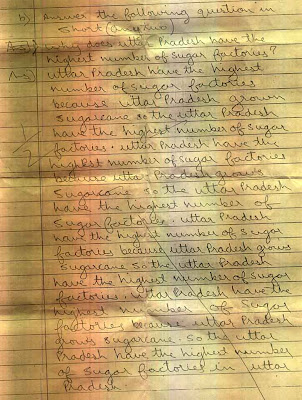 b) Answer the following question in
short (any two)
Why does uttar Pradesh have the
highest number of sugar factories?
Ans) uttar Pradesh have the highest
number of sugar factories
because uttar Pradesh grown
sugarcane so the uttar Pradesh
have the highest number of sugar
factories. uttar Pradesh have the
highest number of sugar factories
because uttar Pradesh grows
sugarcane so the uttar Pradesh
have the highest number of
sugar factories uttar Pradesh
have the highest number of sugar
factories because uttar Pradesh grows
sugarcane so the uttar Pradesh
have the highest number of sugar
factories. uttar Pradesh have the
highest number of sugar
factories because uttar Pradesh
grows sugarcane. so the uttar
Pradesh have the highest number
of sugar factories in uttar
Pradesh